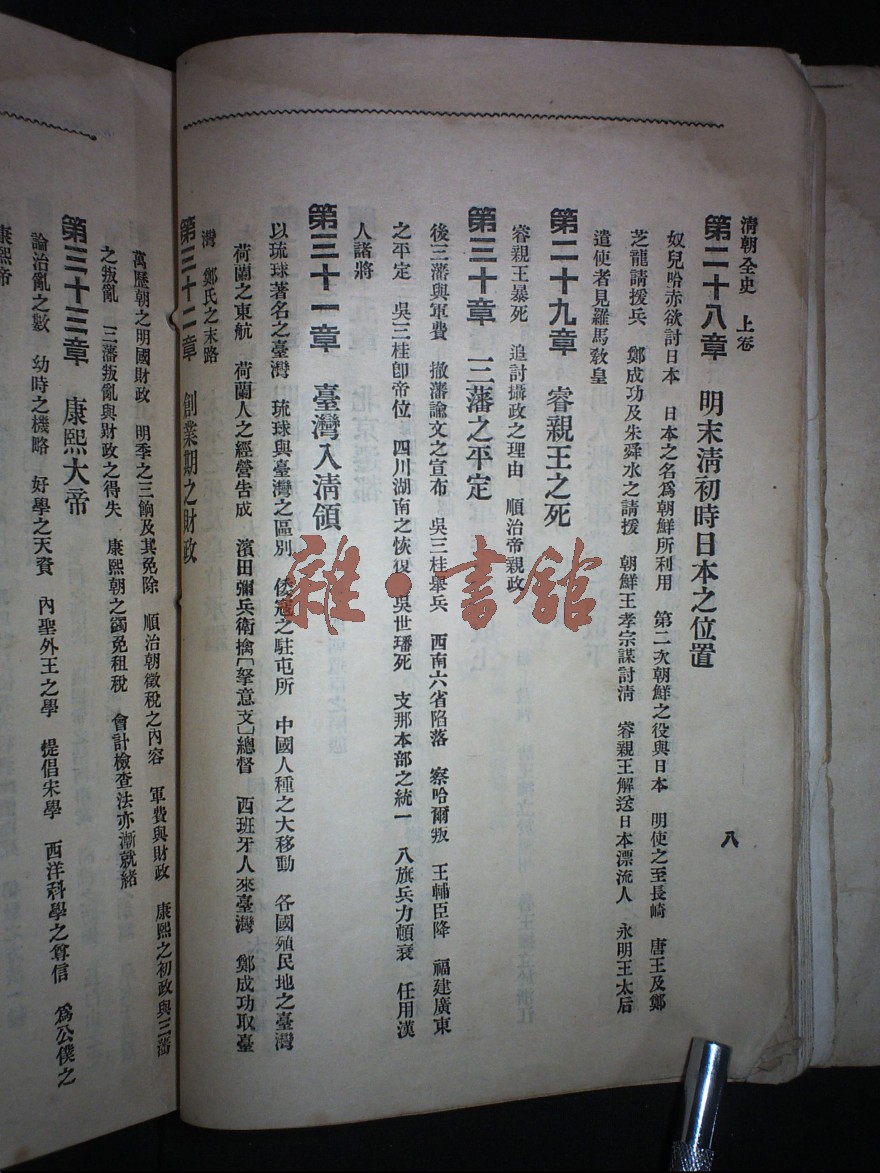 清朝全史 上卷
第二十八章 明末淸初時日本之位置
奴兒哈赤欲討日本 日本之名爲朝鮮所利用 第二次朝鮮之役與日本 明使之至長崎 唐王及鄭
芝龍請援兵 鄭成功及朱舜水之請援 朝鮮王孝宗謀討淸 睿親王解送日本漂流人 永明王太后
遣使者見羅馬敎皇
第二十九章 睿親王之死
睿親王暴死 追討攝政之理由 順治帝親政
第三十章 三藩之平定
後三藩與軍費 撤藩諭文之宣布 吳三桂舉兵 西南六省陷落 察哈爾叛 王輔臣降 福建廣東
之平定 吳三桂卽帝位 四川湖南之恢復 吳世璠死 支那本部之統一 八旗兵力頓衰 任用漢
人諸將
第三十一章 臺灣入淸領
以琉球著名之臺灣 琉球與臺灣之區別 倭寇之駐屯所 中國人種之大移動 各國殖民地之臺灣
荷蘭之東航 荷蘭人之經營吿成 濱田彌兵衛擒[拏意文]總督 西班牙人來臺灣 鄭成功取臺
灣 鄭氏之末路
第三十二章 創業期之財政
萬歷朝之明國財政 明季之三餉及其免除 順治朝徵稅之內容 軍費與財政 康熙之初政與三藩
之叛亂 三藩叛亂與財政之得失 康熙朝之蠲免租稅 會計檢查法亦漸就緒
第三十三章 康熙大帝
論治亂之數 幼時之機略 好學之天資 內聖外王之學 提倡宋學 西洋科學之尊信 爲公僕之
康熙帝
八
雜·書館